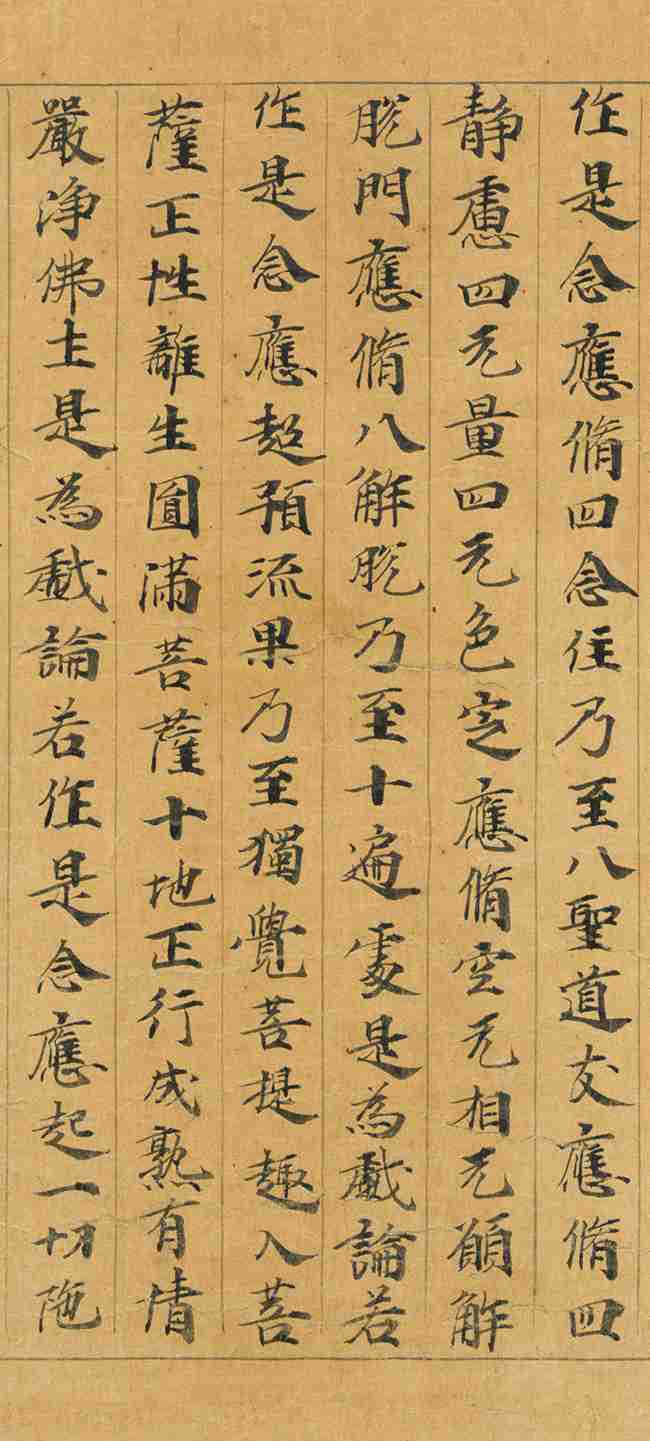 作是念應脩四念住乃至八聖道支應脩四
靜慮四无量四无色定應脩空无相无願解
脫門應脩八解脫乃至十遍處是為戲論若
作是念應超預流果乃至獨覺菩提趣入菩
薩正性離生圓滿菩薩十地正行成熟有情
嚴淨佛土是為戲論若作是念應起一切陁